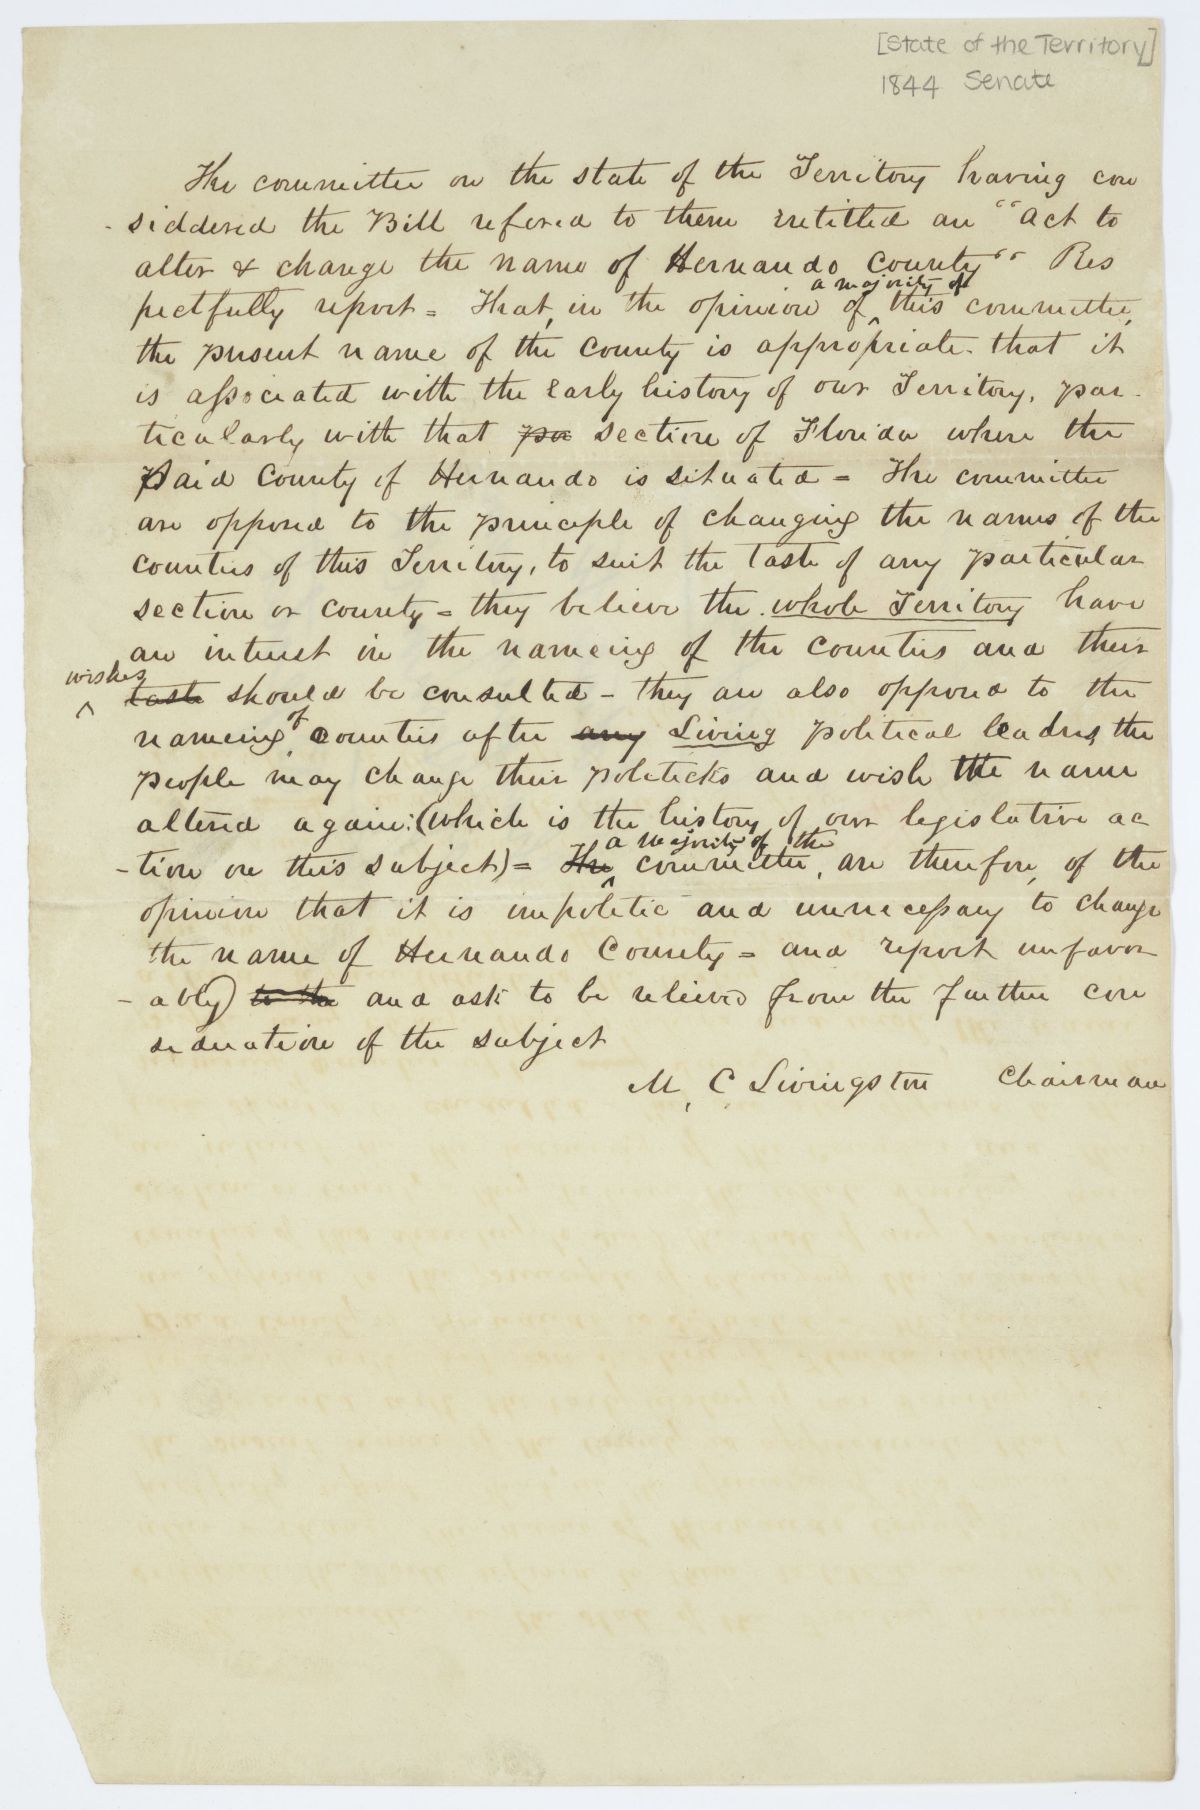 [State of the Territory]
1844 Senate
The committee on the state of the Territory having con
- siddered the Bill refered to them entitled an "act to
alter & change the name of Hernando County" Res
pectfully report = That, in the opinion of a majority of this committee,
the present name of the county is appropriate. that it
is associated with the early history of our Territory, par-
ticularly with that par section of Florida where the
said County of Hernando is situated = The committee
are opposed to the principle of changing the names of the
counties of this Territory, to suit the taste of any particular
section or county = they believe the whole Territory have
an interest in the nameing of the counties and their
wishes taste should be consulted - they are also opposed to the
nameing of counties after any Living political leaders, the
people may change their politicks and wish the name
altered again: (which is the history of our legislative ac
- tion on this subject) = The a majority of the committee, are therefore, of the
opinion that it is impolitic and unnecessary to change
the name of Hernando County = and report unfavor
- ably) to the and ask to be relieved from the further con
sideration of the subject
M, C Livingston Chairman